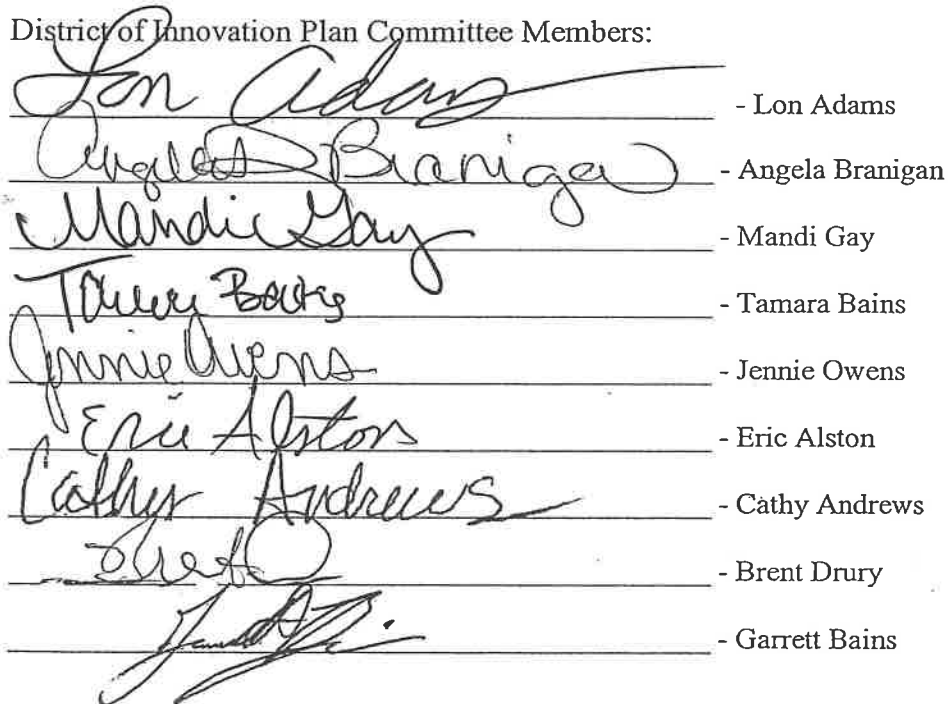 District of Innovation Plan Committee Members:
Lon Adams - Lon Adams
Angela Branigan - Angela Branigan
Mandi Gay - Mandi Gay
- Tamara Bains
Jennie Owens - Jennie Owens
Eric Alston - Eric Alston
Cathy Andrews - Cathy Andrews
- Brent Drury
- Garrett Bains